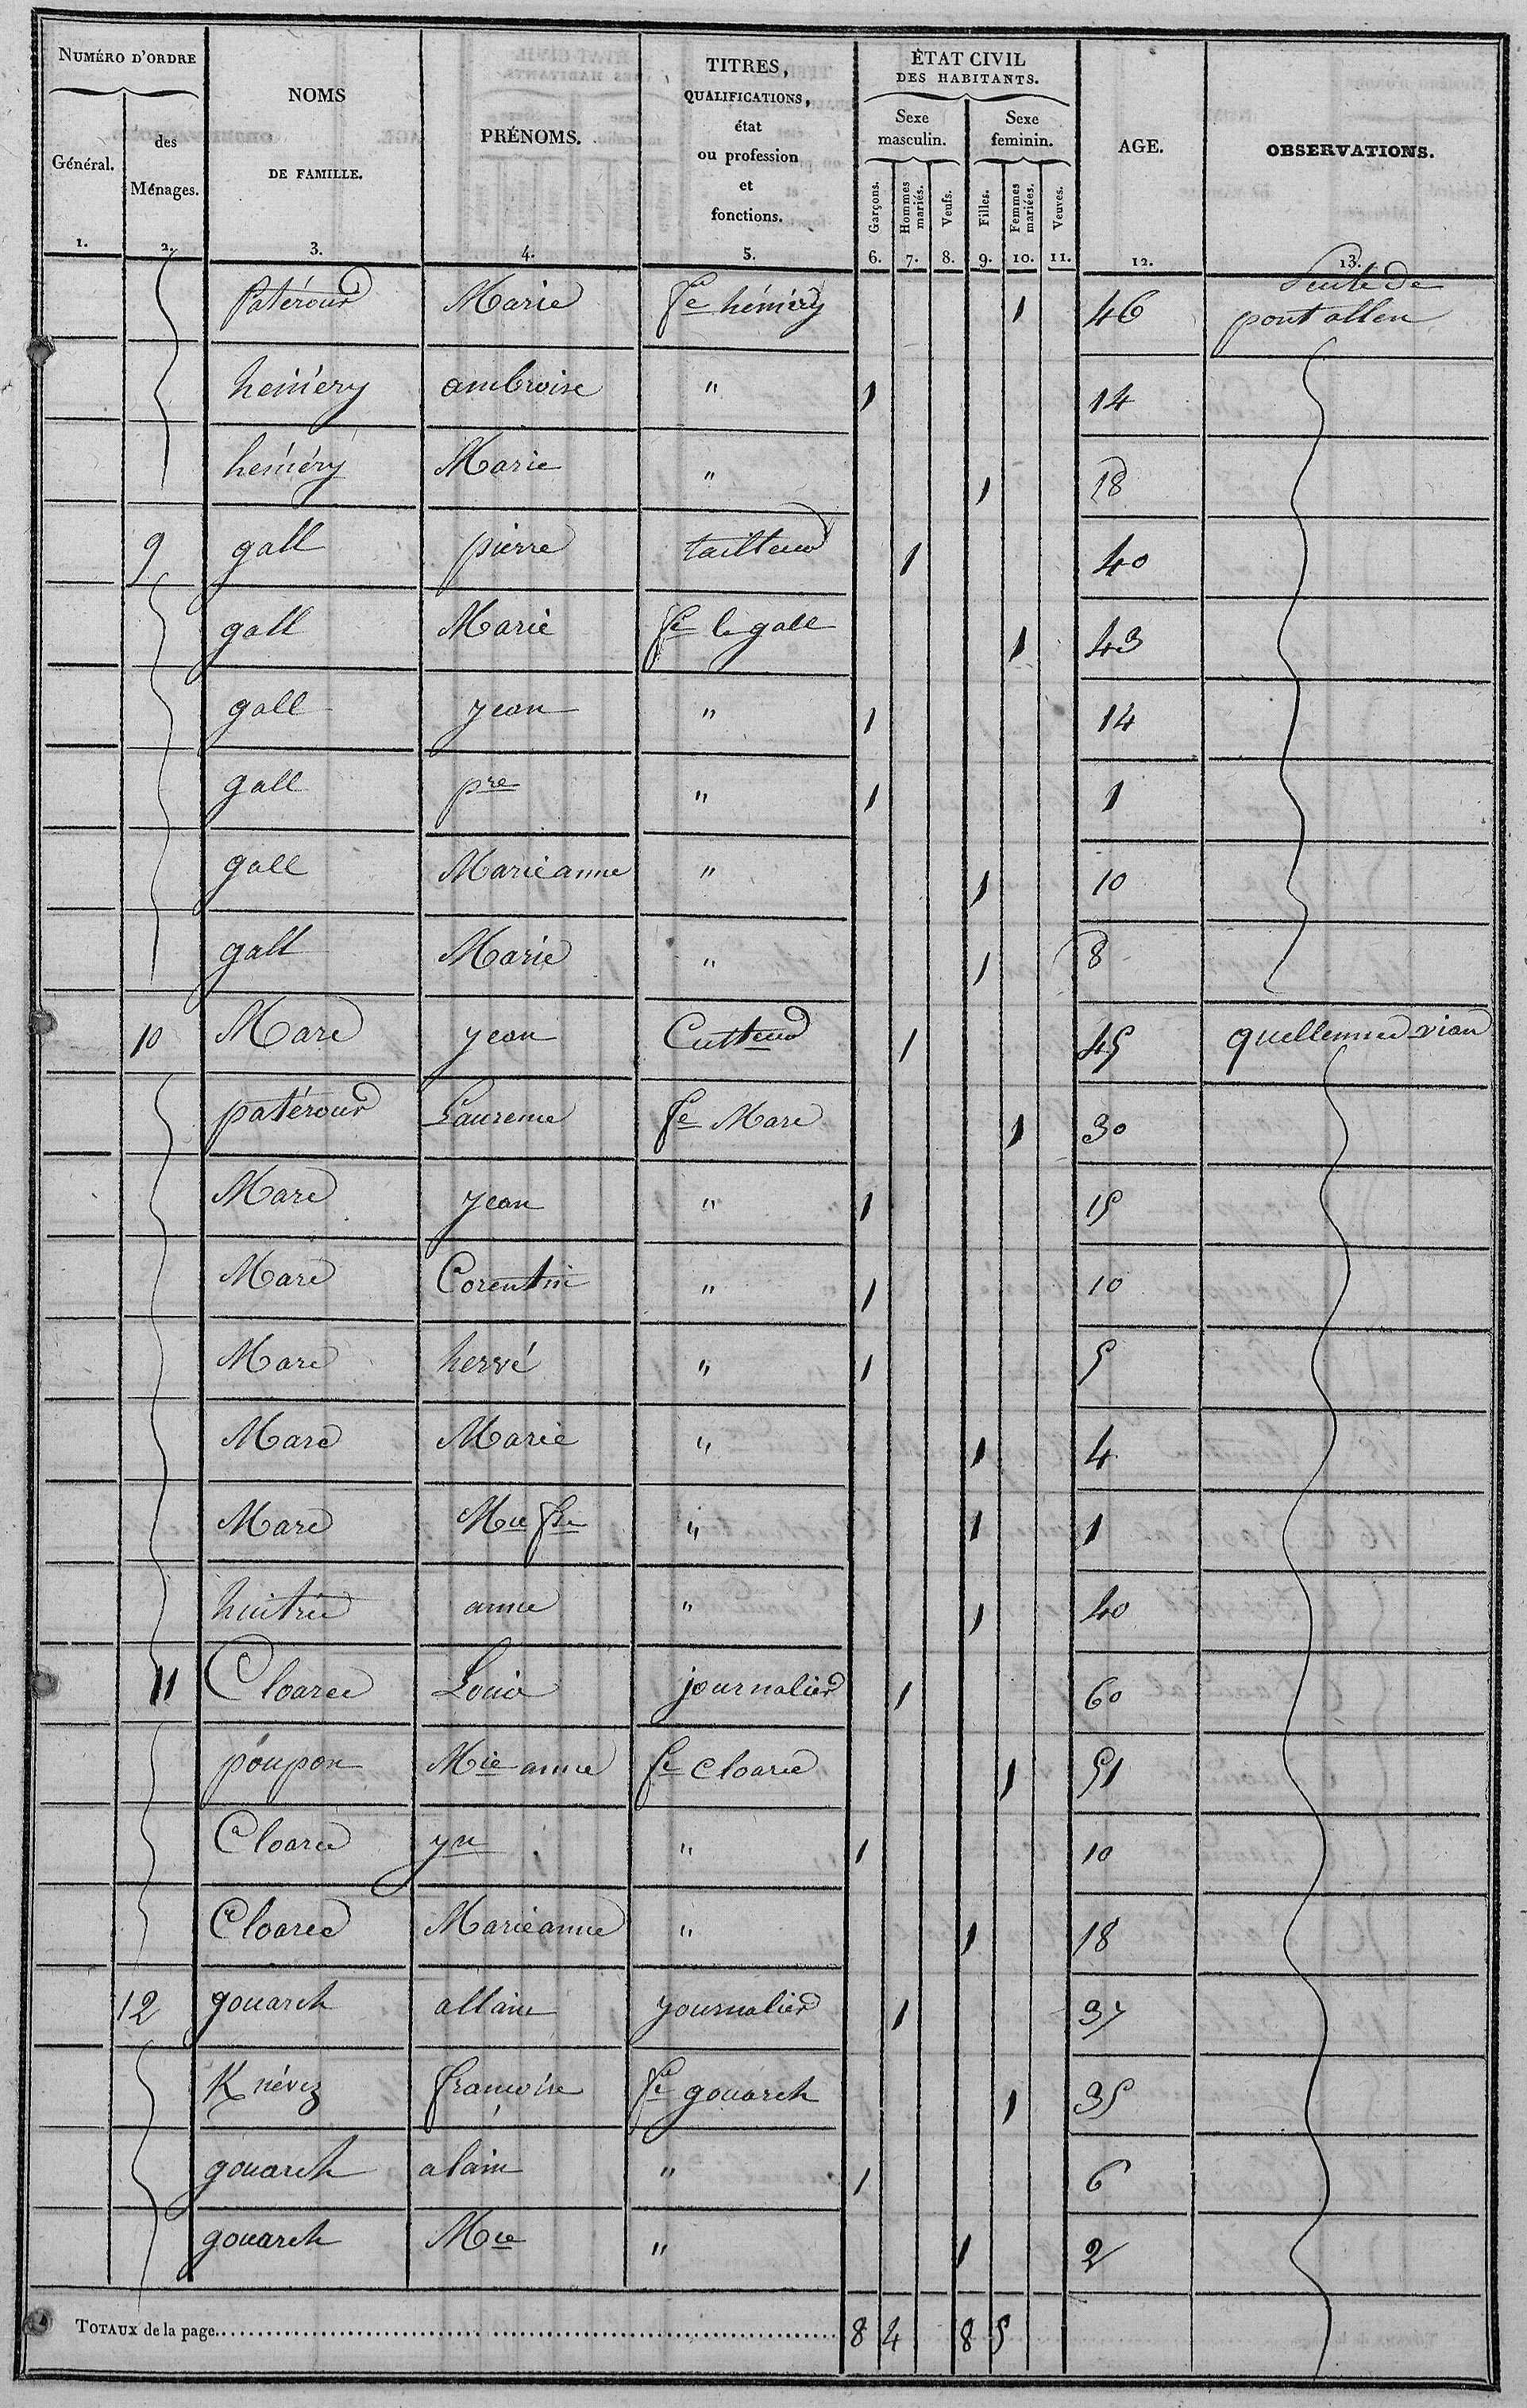 NUMÉRO D'ORDRE
Général.
des Ménages.
NOMS DE FAMILLE.
PRÉNOMS.
TITRES, QUALIFICATIONS, état ou profession et fonctions.
ÉTAT CIVIL DES HABITANTS.
Sexe masculin.
Sexe feminin.
Garçons.
Hommes mariés.
Veufs.
Filles.
Femmes mariées.
Veuves.
AGE.
OBSERVATIONS.
1. 2. 3. 4. 5. 6. 7. 8. 9. 10. 11. 12. 13.
Patérour Marie fe héméry 1 46 Suite de pont allen
héméry ambroise " 1 14
héméry Marie " 1 18
9 gall pierre tailleur 1 40
gall Marie fe le gall 1 43
gall jean " 1 14
gall pre " 1 1
gall Marieanne " 1 10
gall Marie " 1 8
10 Marc jean Cultteur 1 45 quellennec vian
patérour Laurence fe Marc 1 30
Marc jean " 1 15
Marc Corentin " 1 10
Marc hervé " 1 5
Marc Marie " 1 4
Marc Mie fse " 1 1
anne " 1 40
11 Cloarec Louis journalier 1 60
poupon Mie anne fe Cloarec 1 51
Cloarec yn " 1 10
Cloarec Marieanne " 1 18
12 gouarch allain journalier 1 37
Knévez françoise fe gouarch 1 35
gouarch alain " 1 6
gouarch Mie " 1 2
TOTAUX de la page 8 4 8 5